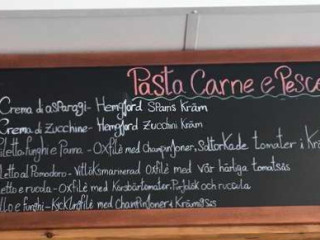 Pasta Carne e Pesce
Crema di asparagi - Hemgjord Sparis Kräm
Crema di Zucchine - Hemgjord Zucchini Kräm
Filetto Funghi e Panna - Oxfilé med champinjoner, Soltorkade tomater i
Filetto al Pomodoro - Vitlöksmarinerad Oxfilé med vår härliga tomatsås
Filetto e rucola - Oxfilé med Körsbärtomater, Purjolök och ruccola
Pollo e funghi - Kycklingfilé med champinjoner i Kräm sås